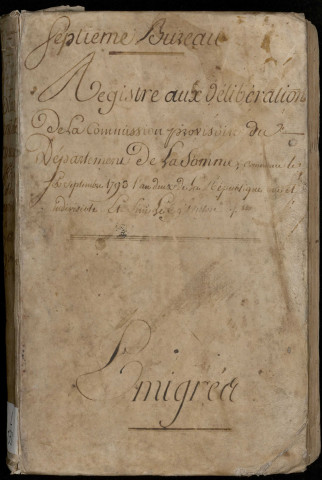 Septieme Bureau
Registre aux délibération
De la Commission provisoire du
Département De la Somme, Commencé le
Septembre 1793 l'an deux de la République une et
indivisible Et
Emigrés